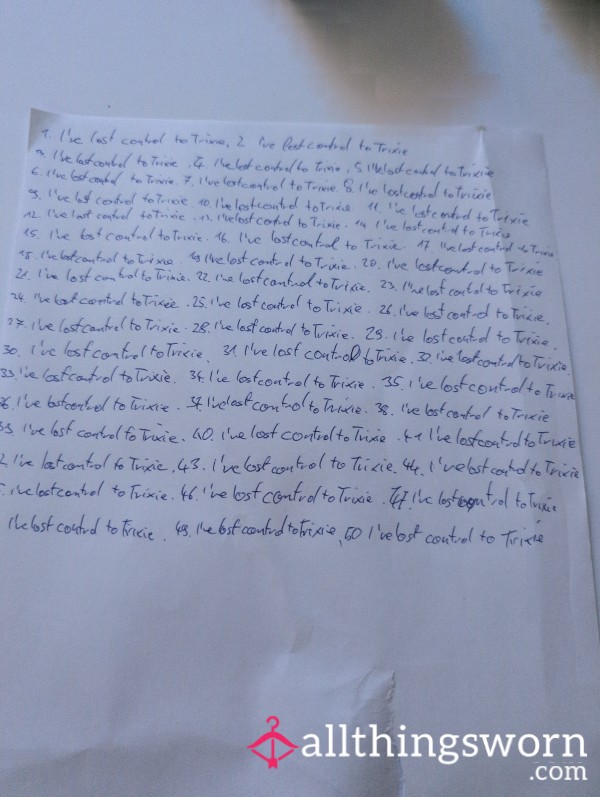 1. I've lost control to Trixie, 2. I've lost control to Trixie
3. I've lost control to Trixie. 4. I've lost control to Trixie, 5. I've lost control to Trixie
6. I've lost control to Trixie. 7. I've lost control to Trixie. 8. I've lost control to Trixie
9. I've lost control to Trixie. 10. I've lost control to Trixie. 11. I've lost control to Trixie
12. I've lost control to Trixie. 13. I've lost control to Trixie. 14. I've lost control to Trixie
15. I've lost control to Trixie. 16. I've lost control to Trixie. 17. I've lost control to Trixie
18. I've lost control to Trixie. 19. I've lost control to Trixie. 20. I've lost control to Trixie
21. I've lost control to Trixie. 22. I've lost control to Trixie. 23. I've lost control to Trixie
24. I've lost control to Trixie. 25. I've lost control to Trixie. 26. I've lost control to Trixie.
27. I've lost control to Trixie. 28. I've lost control to Trixie. 29. I've lost control to Trixie.
30. I've lost control to Trixie. 31. I've lost control to Trixie. 32. I've lost control to Trixie.
33. I've lost control to Trixie. 34. I've lost control to Trixie. 35. I've lost control to Trixie
36. I've lost control to Trixie. 37. I've lost control to Trixie. 38. I've lost control to Trixie
39. I've lost control to Trixie. 40. I've lost control to Trixie. 41. I've lost control to Trixie
2. I've lost control to Trixie, 43. I've lost control to Trixie. 44. I've lost control to Trixie
I've lost control to Trixie. 46. I've lost control to Trixie. 47. I've lost control to Trixie
I've lost control to Trixie. 49. I've lost control to Trixie, 50 I've lost control to Trixie
allthingsworn
.com